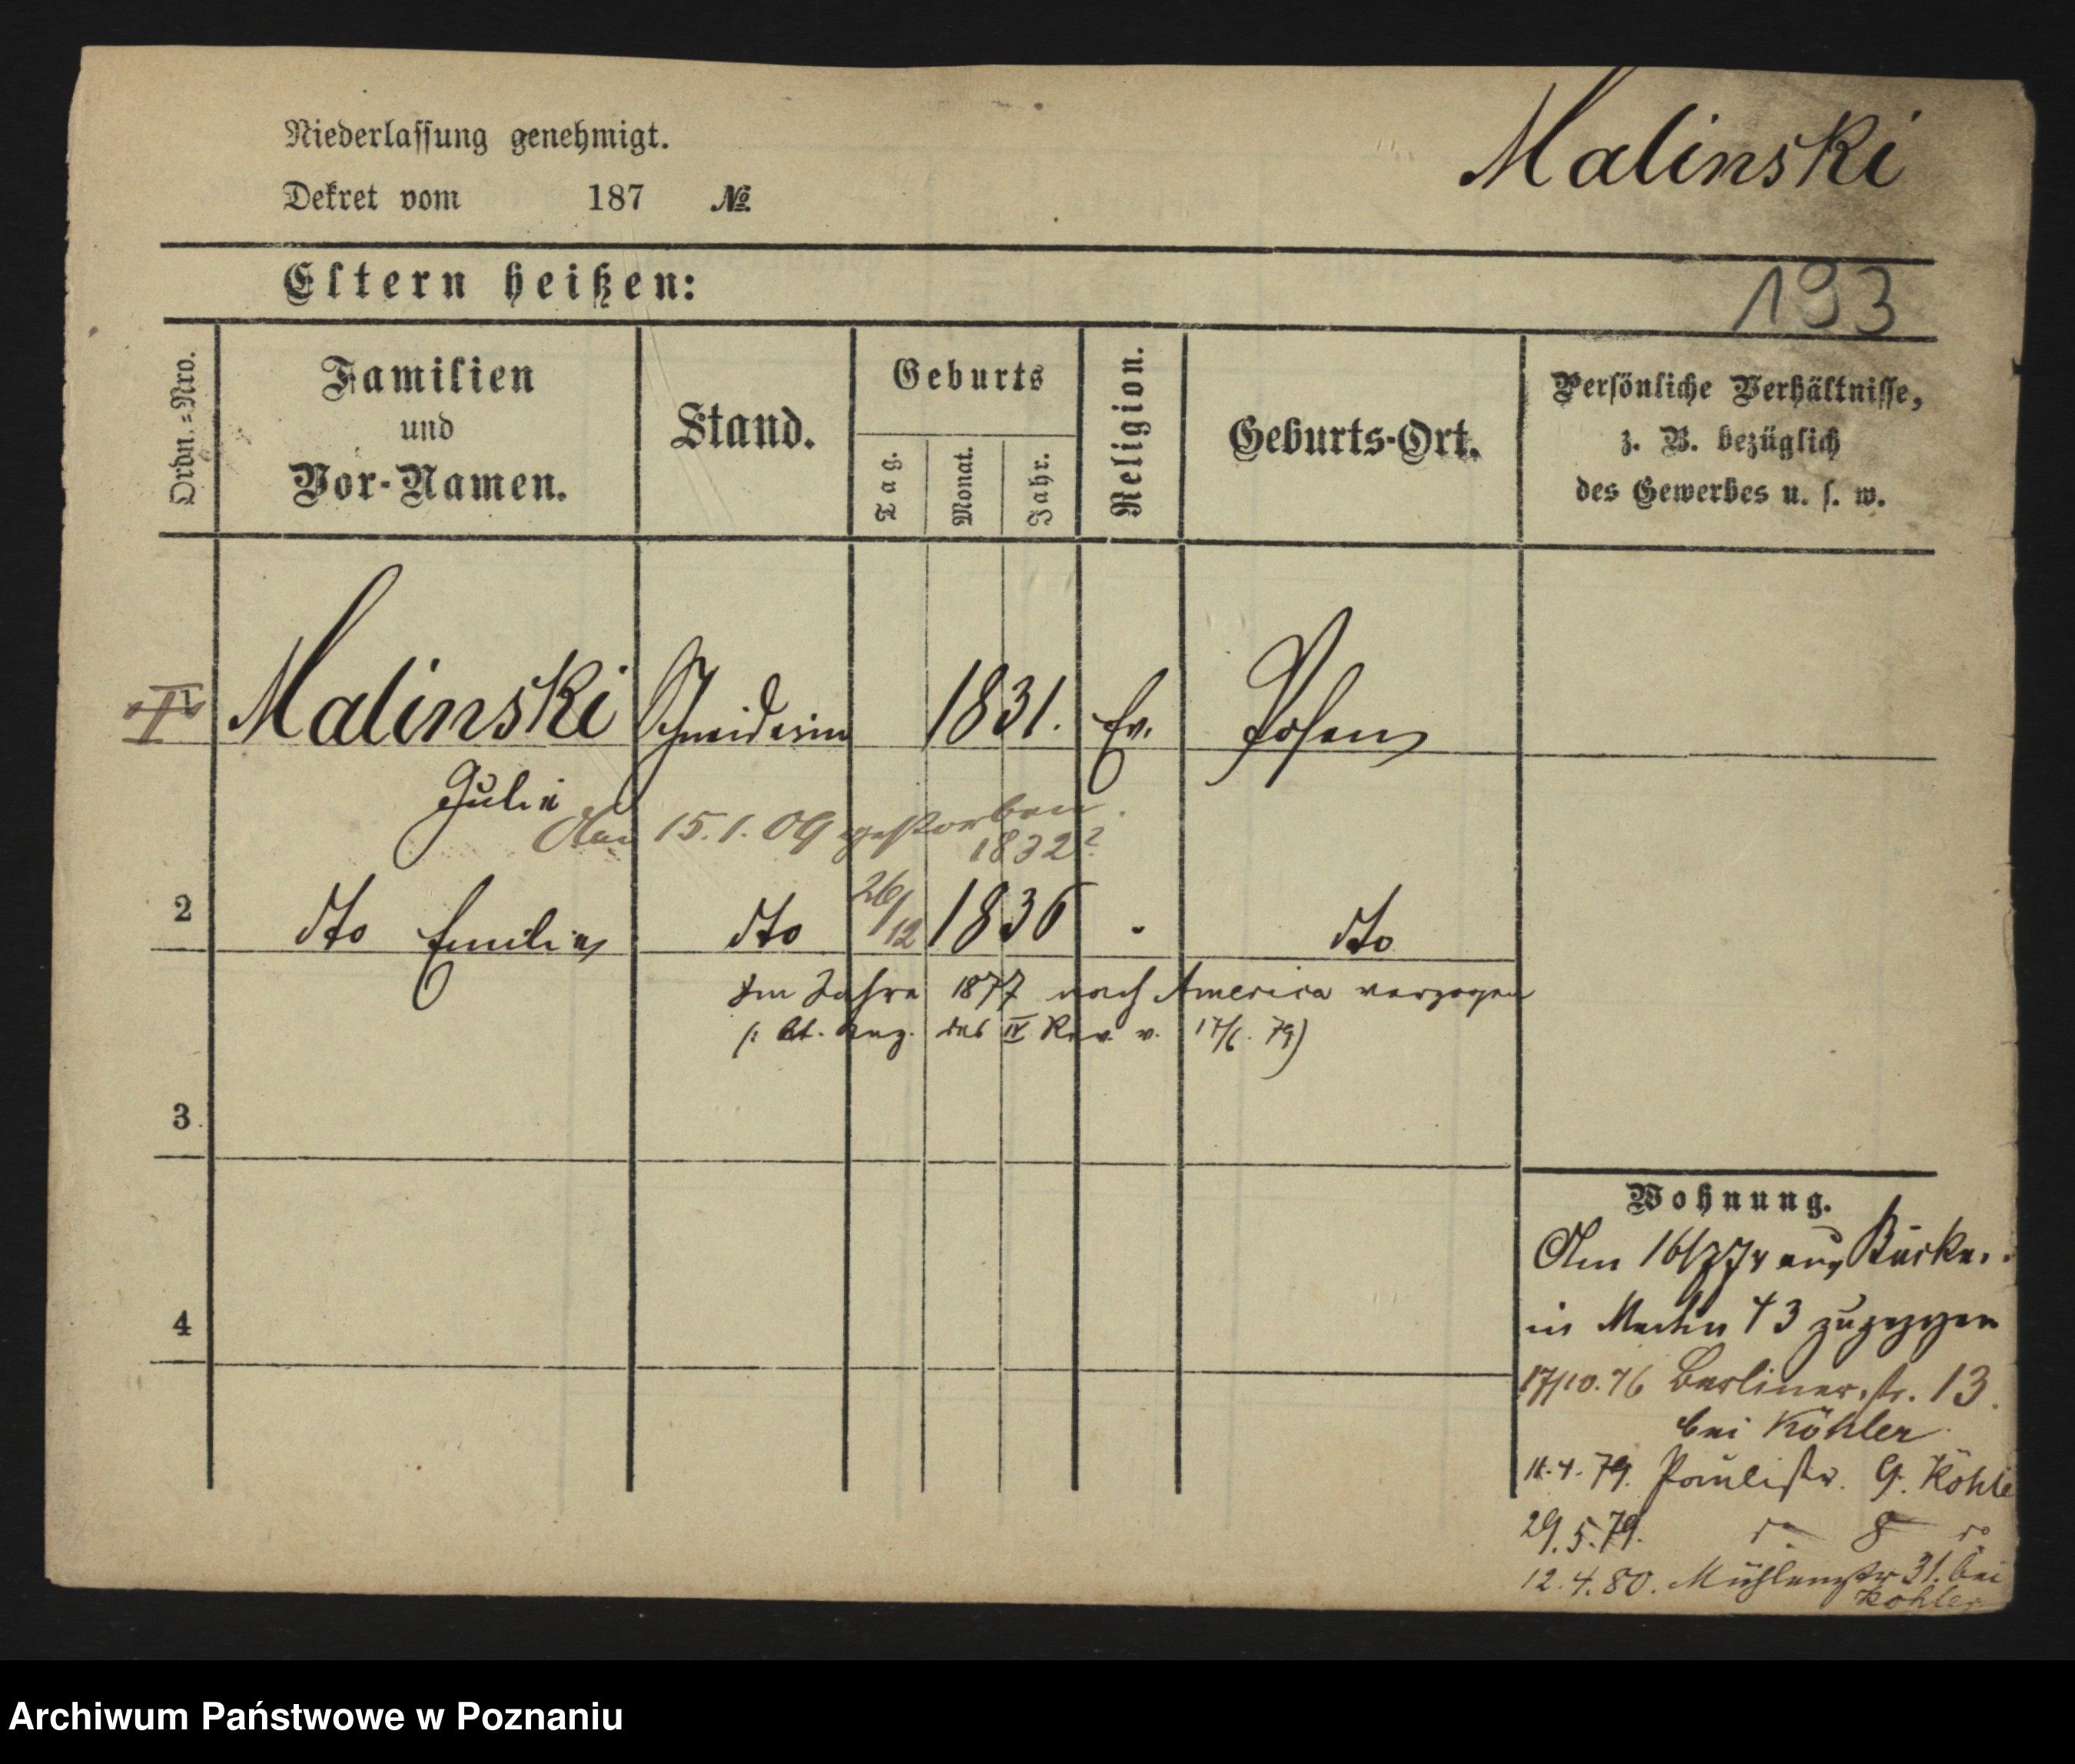 Niederlassung genehmigt.
Malinski
Dekret vom 187 №
Eltern heißen:
193
Ordn.=Nro.
Familien
und
Vor-Namen.
Stand.
Geburts
Tag.
Monat.
Jahr.
Religion.
Geburts-Ort.
Persönliche Verhältnisse,
z. B. bezüglich
des Gewerbes u. s. w.
1 Malinski Schneiderin 1831. Ev. Posen
Julie
Am 15.1.09 gestorben.
1832?
2 dto Emilie dto 26/12 1836 " dto
Im Jahre 1877 nach America verzogen
(: lt. Anz. des IV Rev. v. 17/6. 79)
3
4
Wohnung.
Am
in 43 zugezogen
17/10.76 Berliner.str. 13.
bei Köhler
11.4.79. Paulistr. 9. Köhle
29.5.79. do 8 do
12.4.80. Mühlenstr 31. bei
Köhler
Archiwum Państwowe w Poznaniu